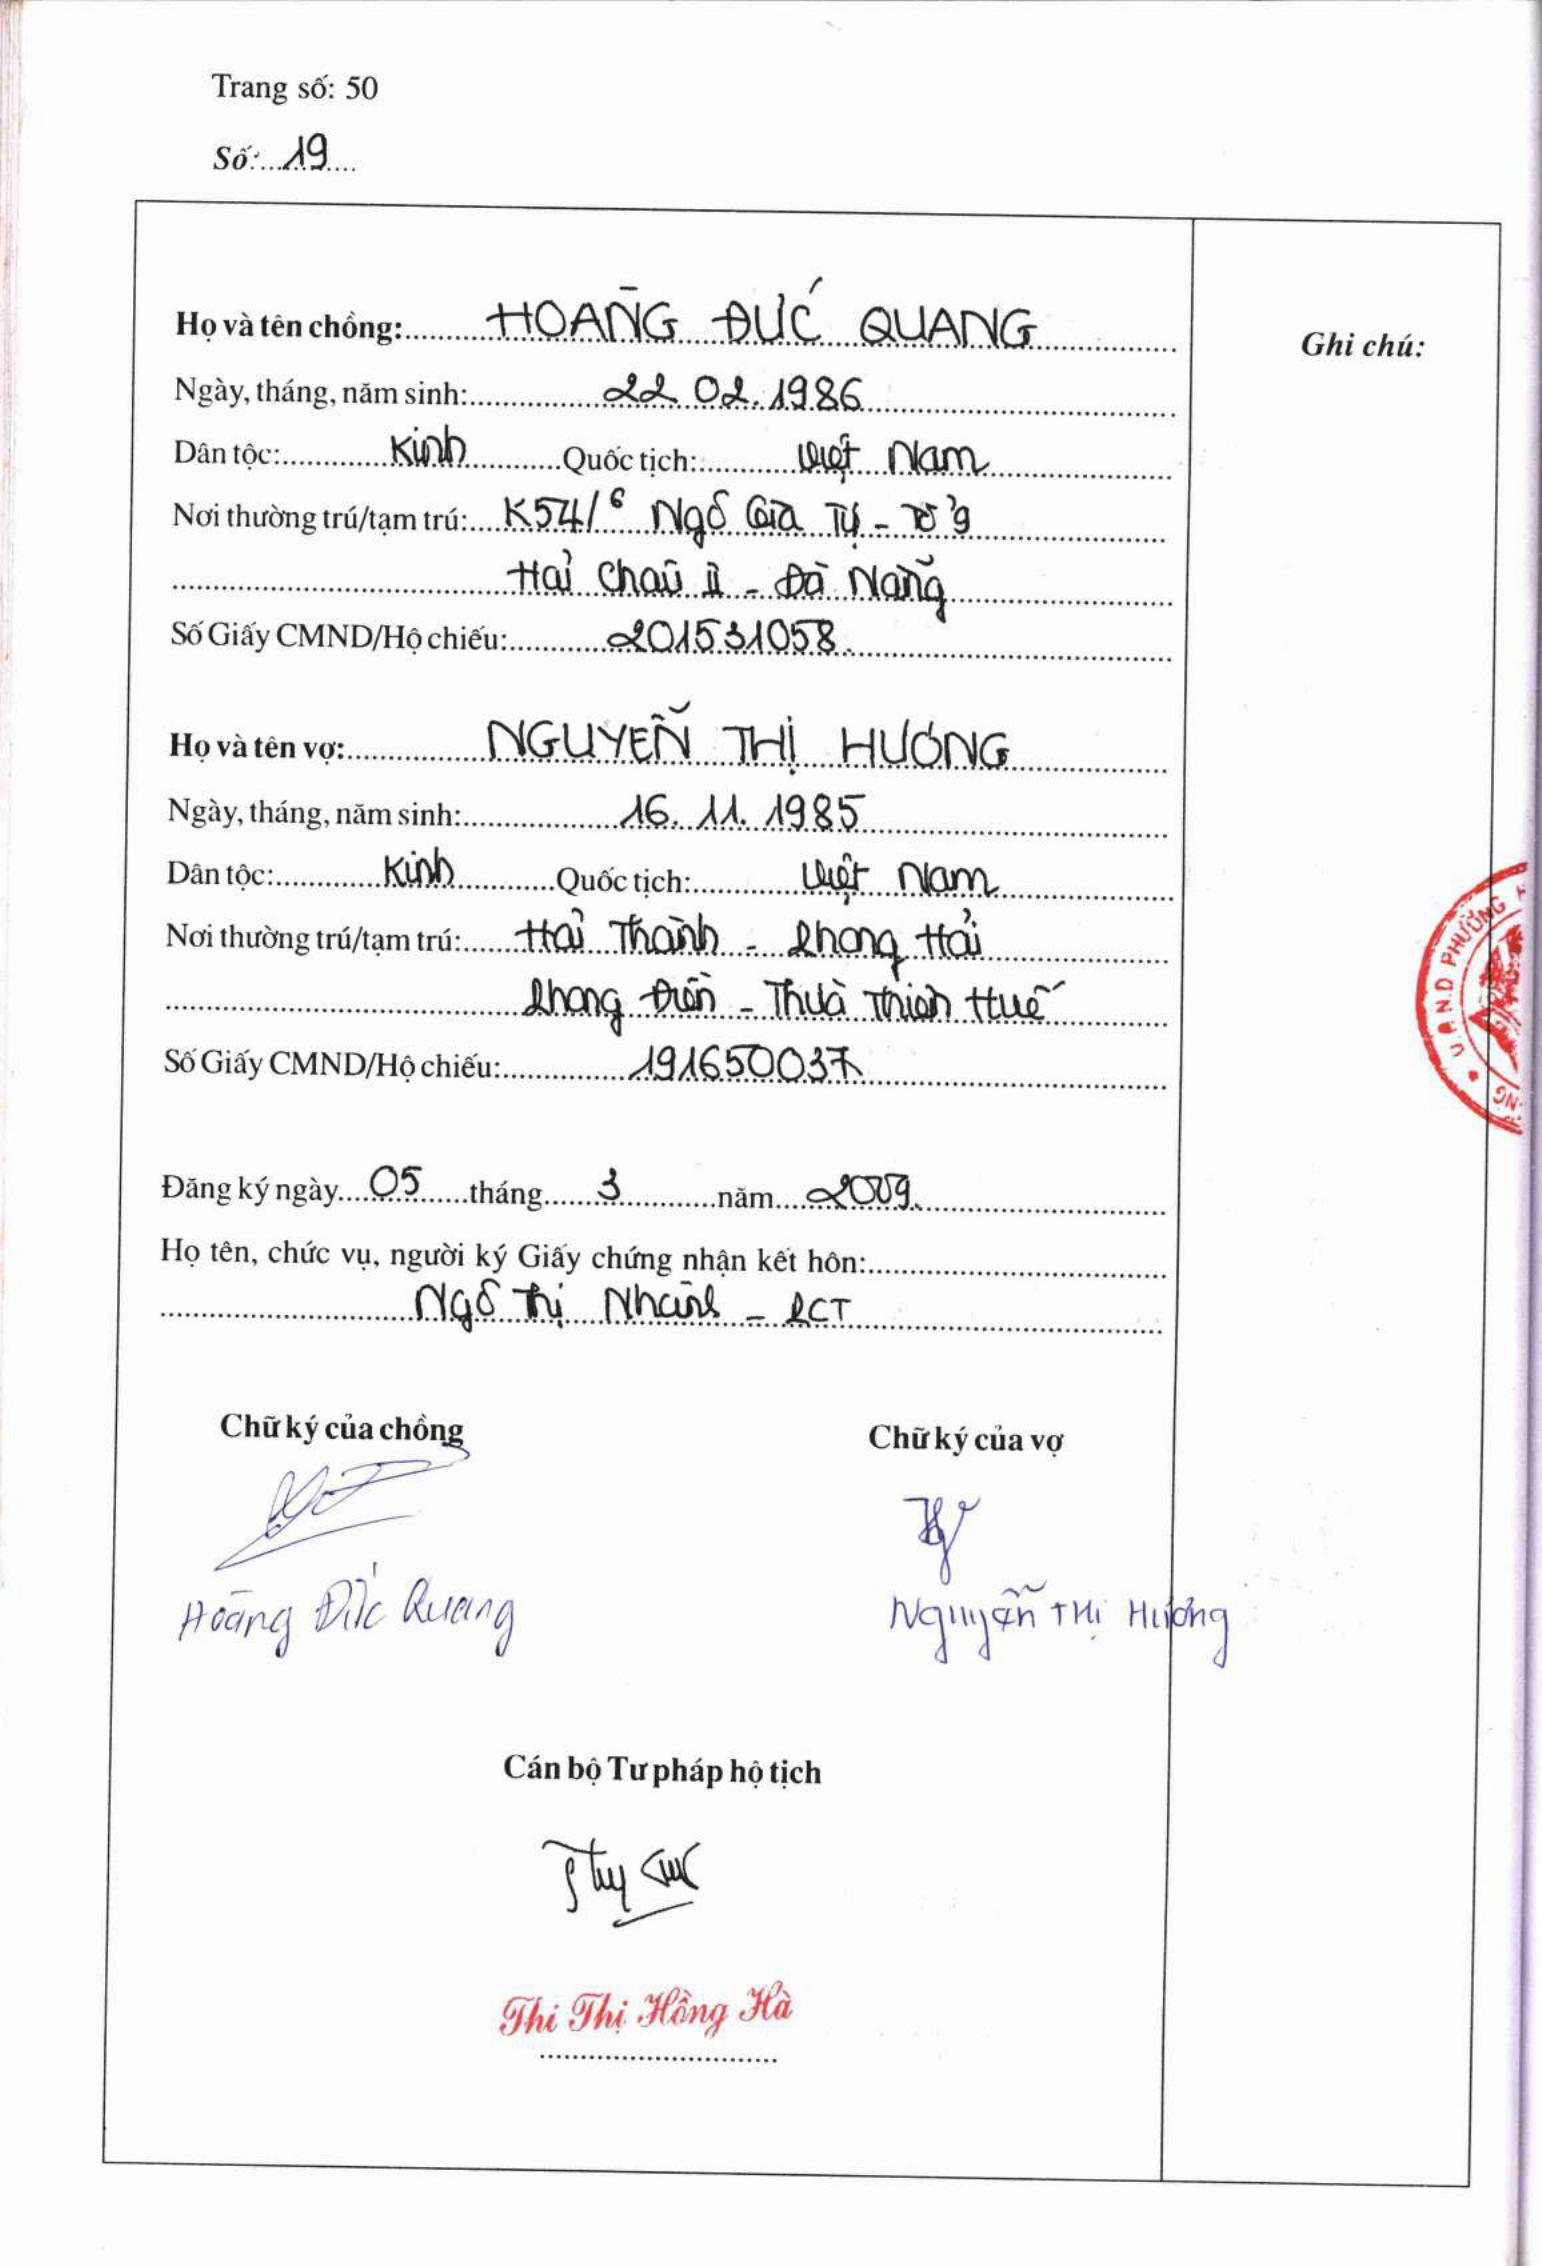 Trang số: 50
Số: 19
Họ và tên chồng: HOÀNG ĐỨC QUANG
Ghi chú:
Ngày, tháng, năm sinh: 22.02.1986
Dân tộc: Kinh Quốc tịch: Việt Nam
Nơi thường trú/tạm trú: K54/6 Ngô Gia Tự - Tổ 9
Hải Châu II - Đà Nẵng
Số Giấy CMND/Hộ chiếu: 201531058.
Họ và tên vợ: NGUYỄN THỊ HƯƠNG
Ngày, tháng, năm sinh: 16.11.1985
Dân tộc: Kinh Quốc tịch: Việt Nam
Nơi thường trú/tạm trú: Hải Thành - Phong Hải
Phong Điền - Thừa Thiên Huế
Số Giấy CMND/Hộ chiếu: 191650037
U.B.N.D PHƯỜNG
Đăng ký ngày 05 tháng 3 năm 2009.
Họ tên, chức vụ, người ký Giấy chứng nhận kết hôn:
Ngô Thị Nhành - PCT
Chữ ký của chồng Chữ ký của vợ
Hoàng Đức Quang Nguyễn Thị Hương
Cán bộ Tư pháp hộ tịch
Thi Thị Hồng Hà